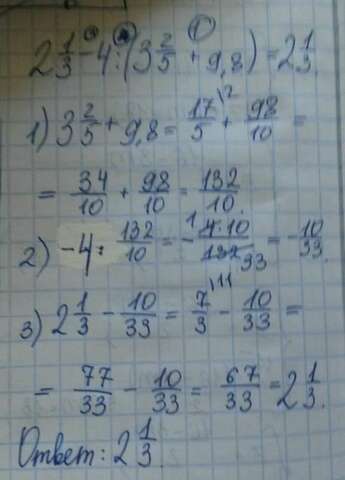 2 1/3 - 4 : (3 2/5 + 9,8) = 2 1/3.
1) 3 2/5 + 9,8 = 17/5 \2 + 98/10 =
= 34/10 + 98/10 = 132/10.
2) -4 : 132/10 = - 1 4·10/132 33 = -10/33.
3) 2 1/3 - 10/33 = 7/3 \11 - 10/33 =
= 77/33 - 10/33 = 67/33 = 2 1/3.
Ответ: 2 1/3.